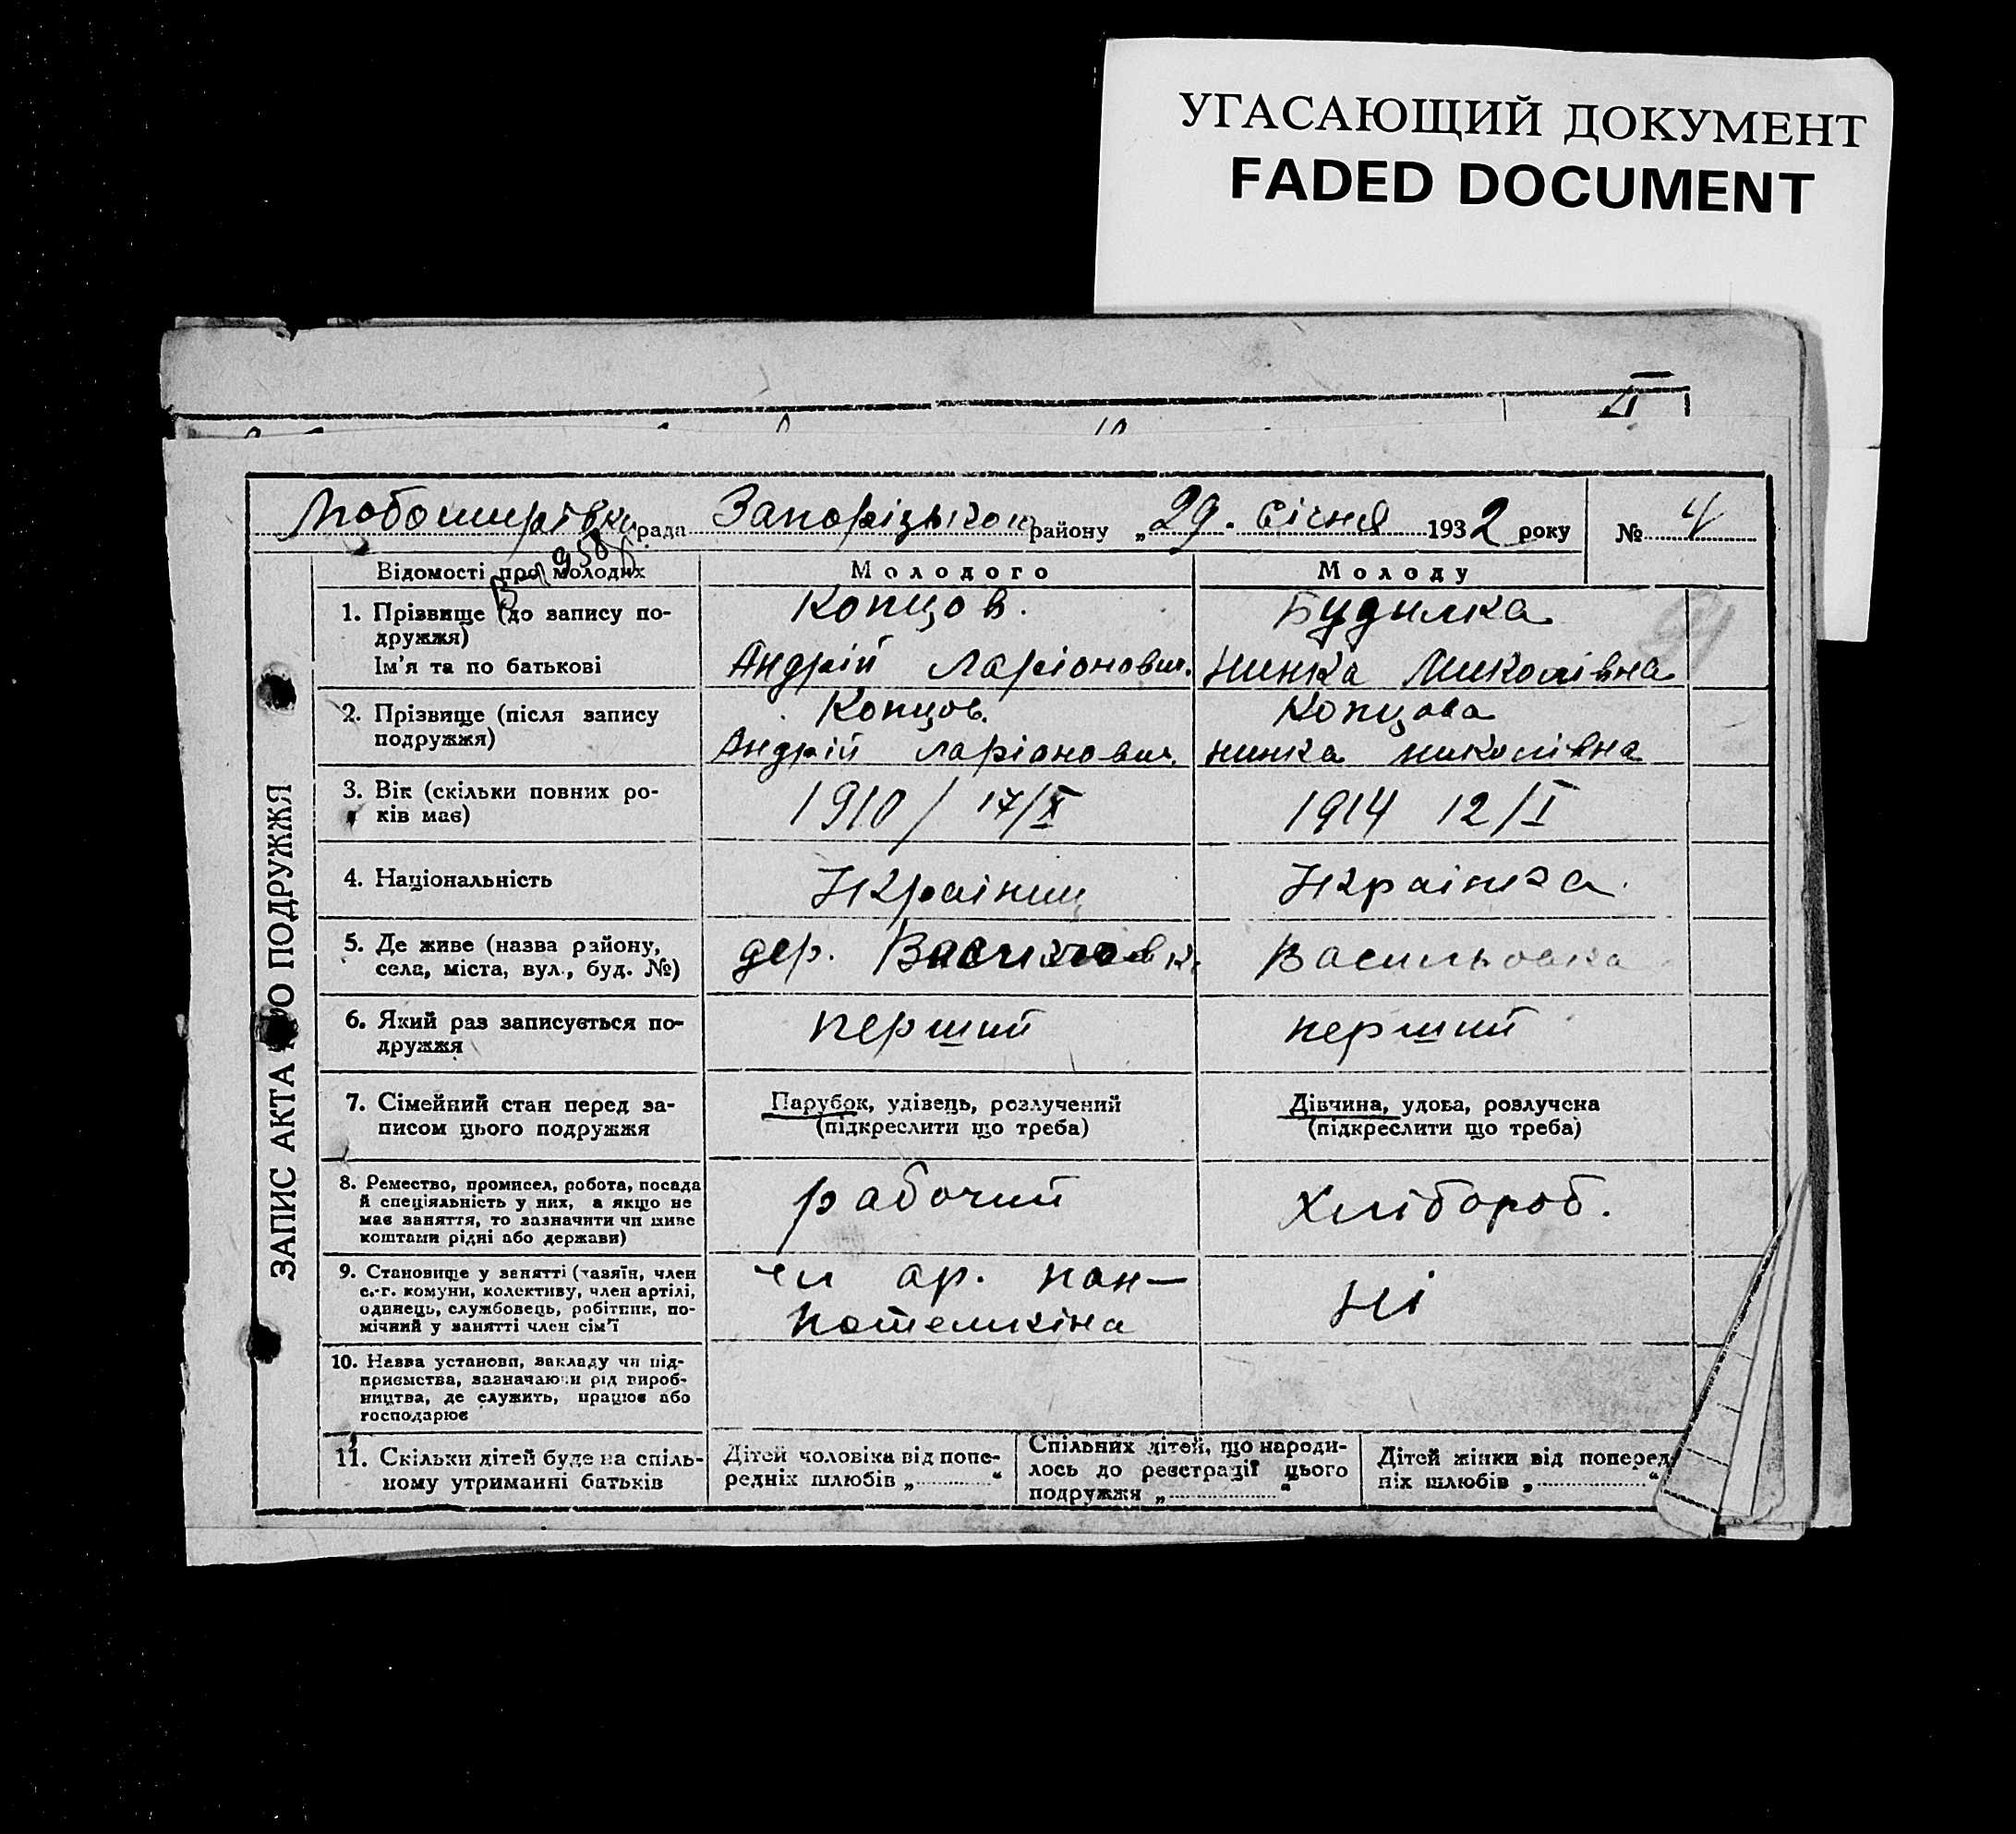 УГАСАЮЩИЙ ДОКУМЕНТ
FADED DOCUMENT
рада Запорізького району „29. січня 1932 року № 4
Відомості про молодих Молодого Молоду
1. Прізвище (до запису по- Копцов. Будилка
дружжя)
Ім'я та по батькові Андрій Ларіонович. Нинка Миколівна
2. Прізвище (після запису Копцов. Копцова
подружжя) Андрій Ларіонович. Нинка Миколівна
3. Вік (скільки повних ро- 1910/ 17/X 1914 12/I
ків має)
4. Національність Українець Українка.
5. Де живе (назва району, дер. Васильовк. Васильовка
села, міста, вул., буд. №)
6. Який раз записується по- перший перший
дружжя
7. Сімейний стан перед за- Парубок, удівець, розлучений Дівчина, удова, розлучена
писом цього подружжя (підкреслити що треба) (підкреслити що треба)
8. Ремество, промисел, робота, посада
й спеціяльність у них, а якщо не рабочий Хлібороб.
має заняття, то зазначити чи живе
коштами рідні або держави)
9. Становище у занятті (хазяїн, член чл ар.
с.-г. комуни, колективу, член артілі, Ні
одинець, службовець, робітник, по- Потемкіна
мічний у занятті член сім'ї
10. Назва установи, закладу чи під-
приємства, зазначаючи рід вироб-
ництва, де служить, працює або
господарює
11. Скільки дітей буде на спіль- Дітей чоловіка від попе- Спільних дітей, що народи- Дітей жінки від поперед
ному утриманні батьків редніх шлюбів „ “ лось до реєстрації цього ніх шлюбів „ “
подружжя „ “
ЗАПИС АКТА ПРО ПОДРУЖЖЯ